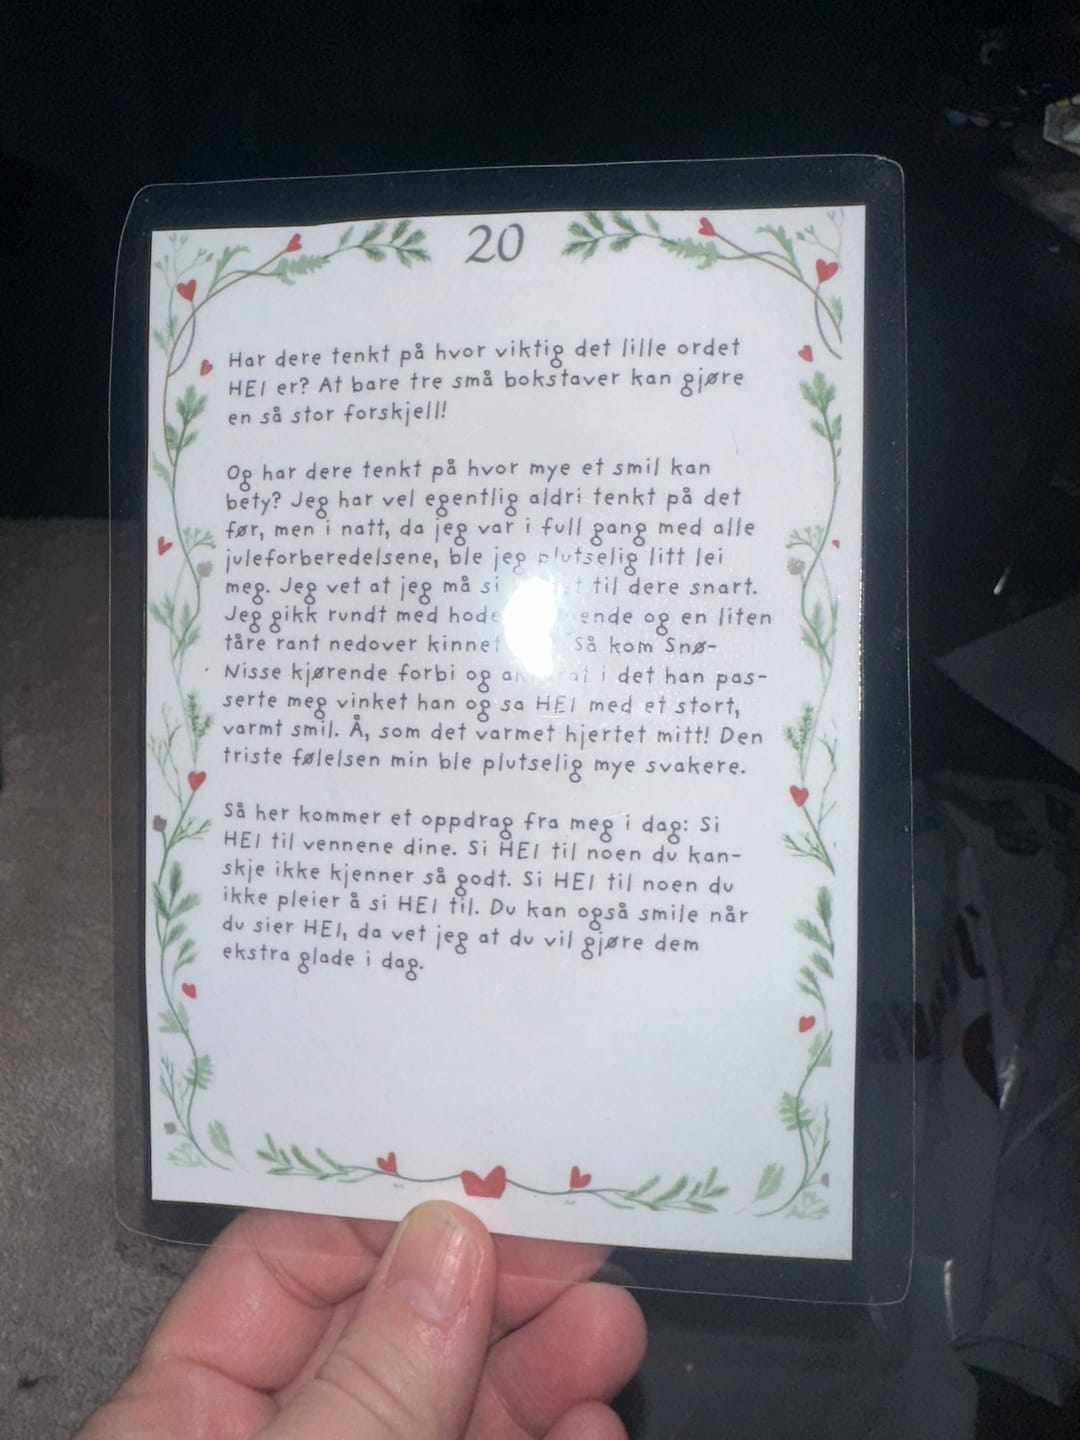 20
Har dere tenkt på hvor viktig det lille ordet
HEI er? At bare tre små bokstaver kan gjøre
en så stor forskjell!
Og har dere tenkt på hvor mye et smil kan
bety? Jeg har vel egentlig aldri tenkt på det
før, men i natt, da jeg var i full gang med alle
juleforberedelsene, ble jeg plutselig litt lei
meg. Jeg vet at jeg må si til dere snart.
Jeg gikk rundt med og en liten
tåre rant nedover Så kom Snø-
Nisse kjørende forbi og akkurat i det han pas-
serte meg vinket han og sa HEI med et stort,
varmt smil. Å, som det varmet hjertet mitt! Den
triste følelsen min ble plutselig mye svakere.
Så her kommer et oppdrag fra meg i dag: Si
HEI til vennene dine. Si HEI til noen du kan-
skje ikke kjenner så godt. Si HEI til noen du
ikke pleier å si HEI til. Du kan også smile når
du sier HEI, da vet jeg at du vil gjøre dem
ekstra glade i dag.